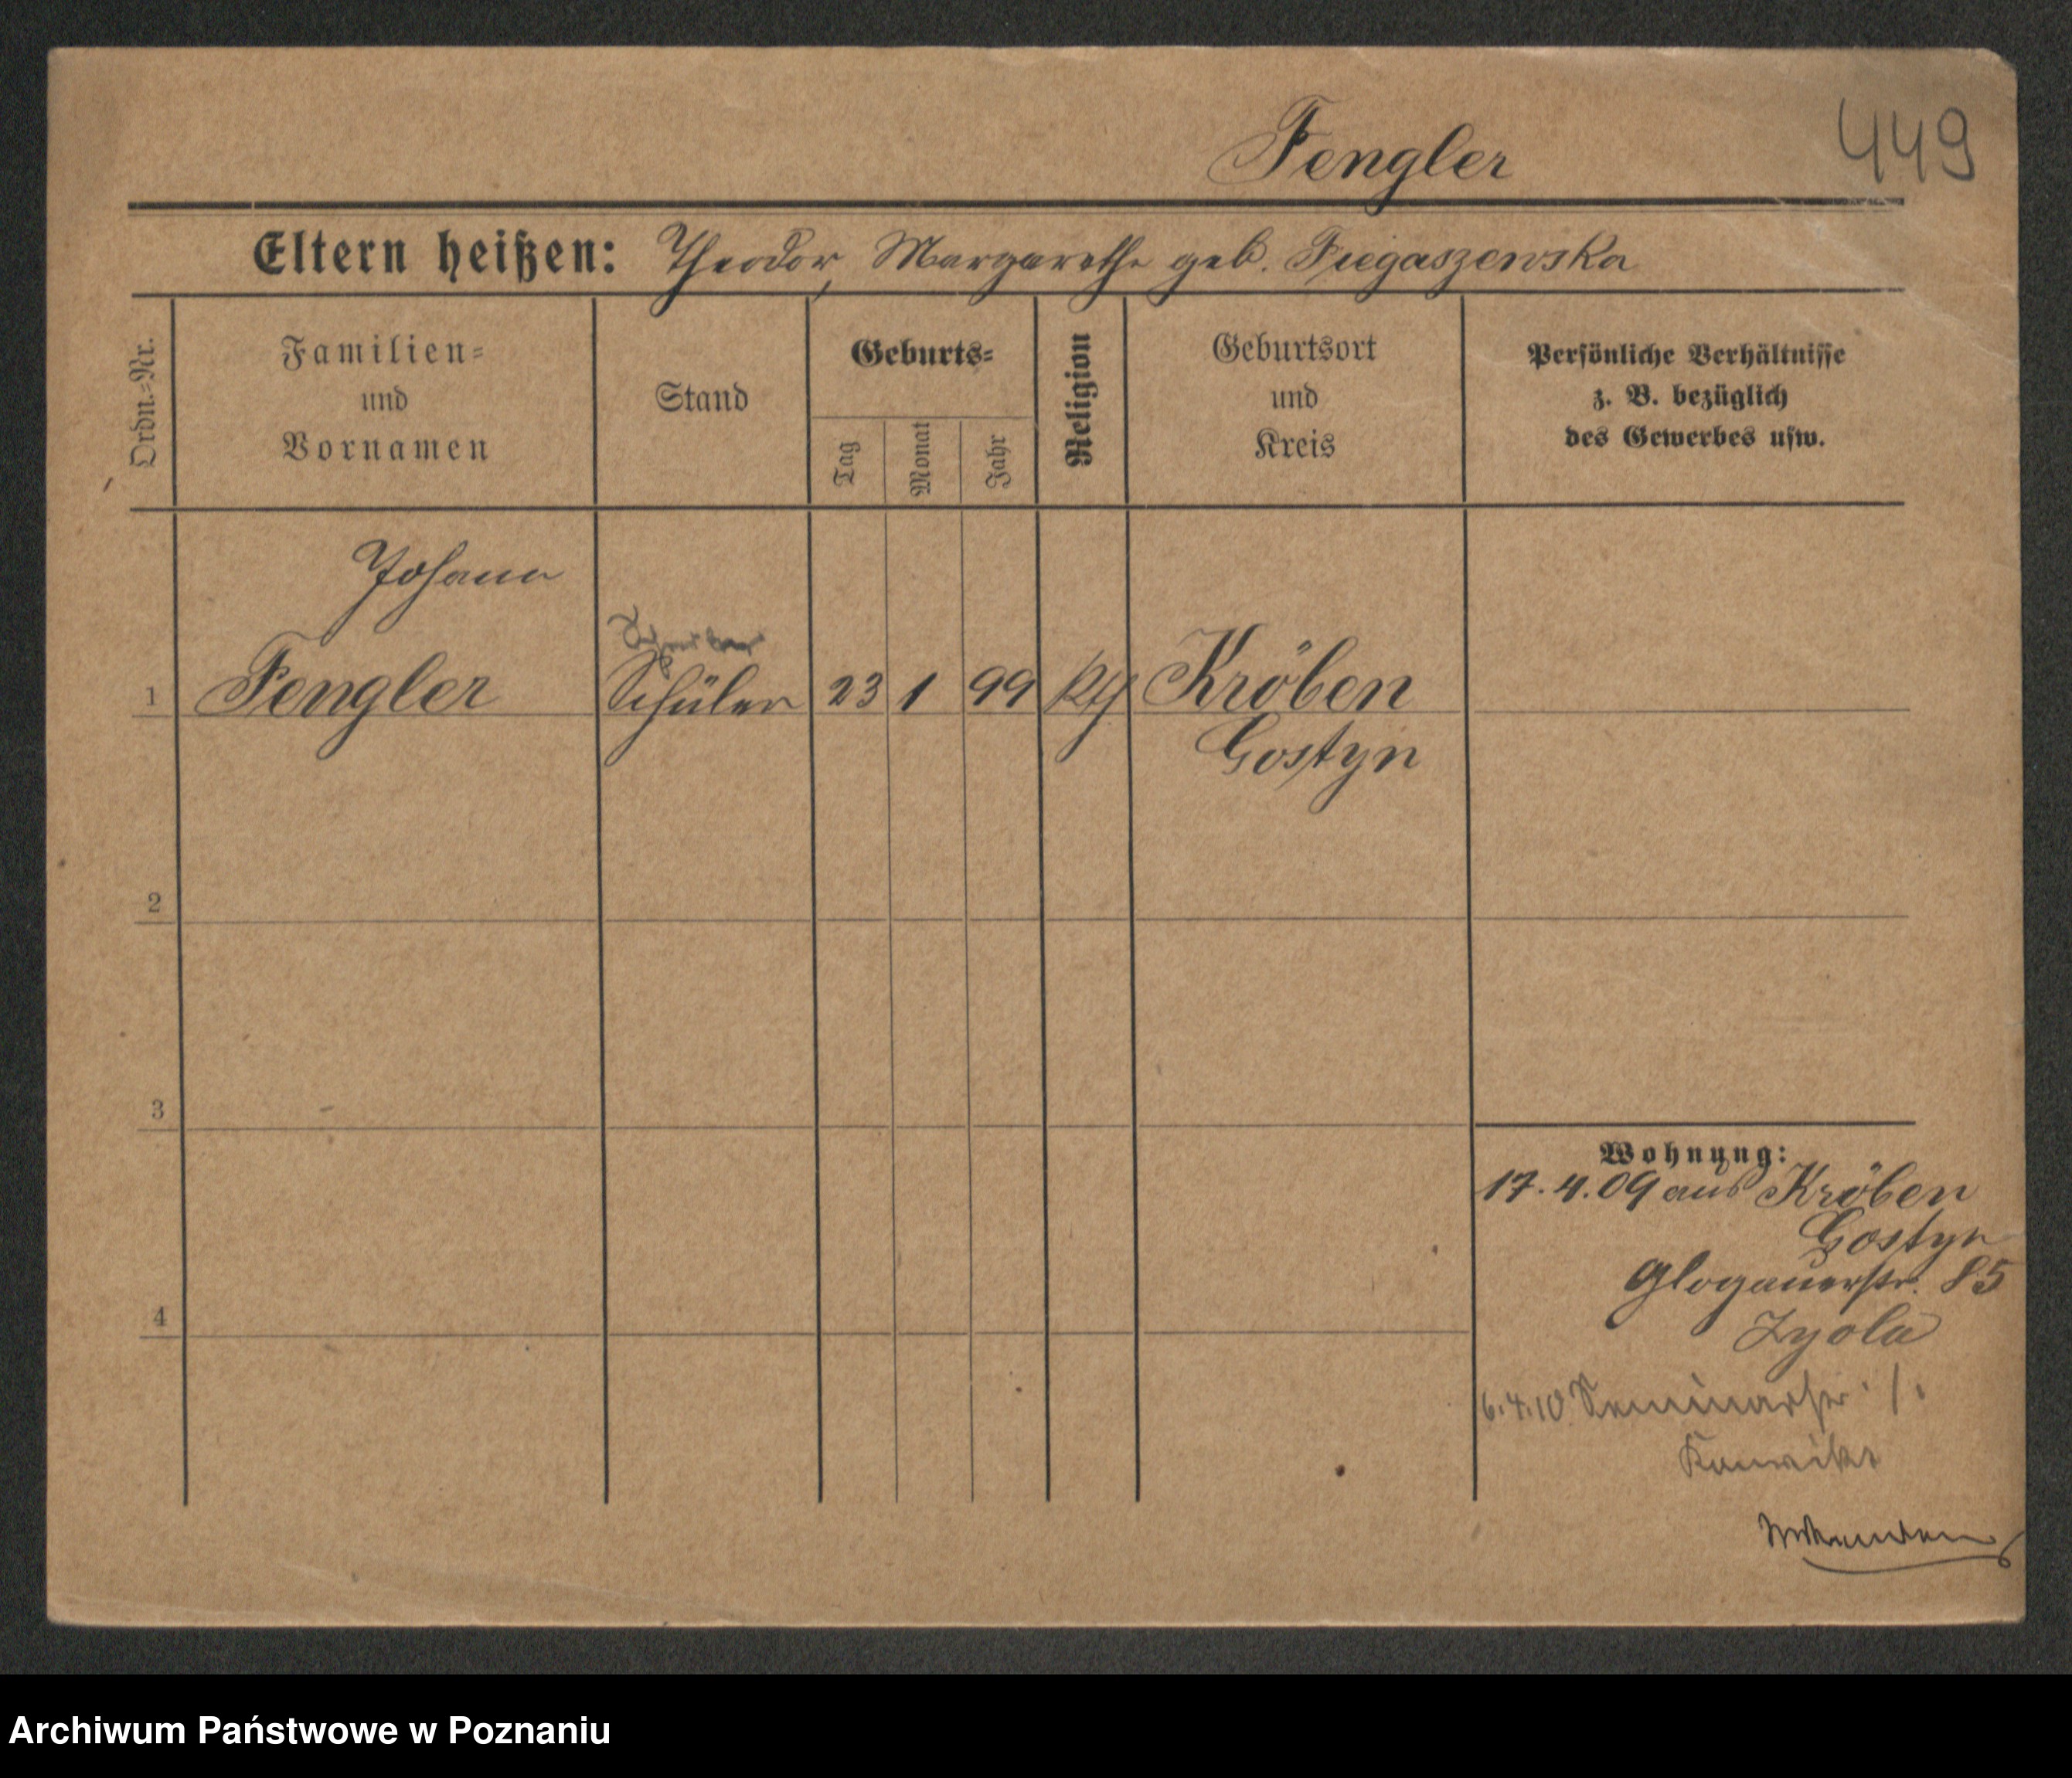 Fengler
449
Eltern heißen: Theodor, Margarethe geb.
Ordn.=Nr.
Familien=
und
Vornamen
Stand
Geburts=
Tag
Monat
Jahr
Religion
Geburtsort
und
Kreis
Persönliche Verhältnisse
z. B. bezüglich
des Gewerbes usw.
Johann
1 Fengler Schüler 23 1 99 kth Kröben
Gostyn
2
3
4
Wohnung:
17.4.09 aus Kröben
Gostyn
Glogauerstr. 85
Zyola
6.4.10 Seminarstr. 1.
Archiwum Państwowe w Poznaniu